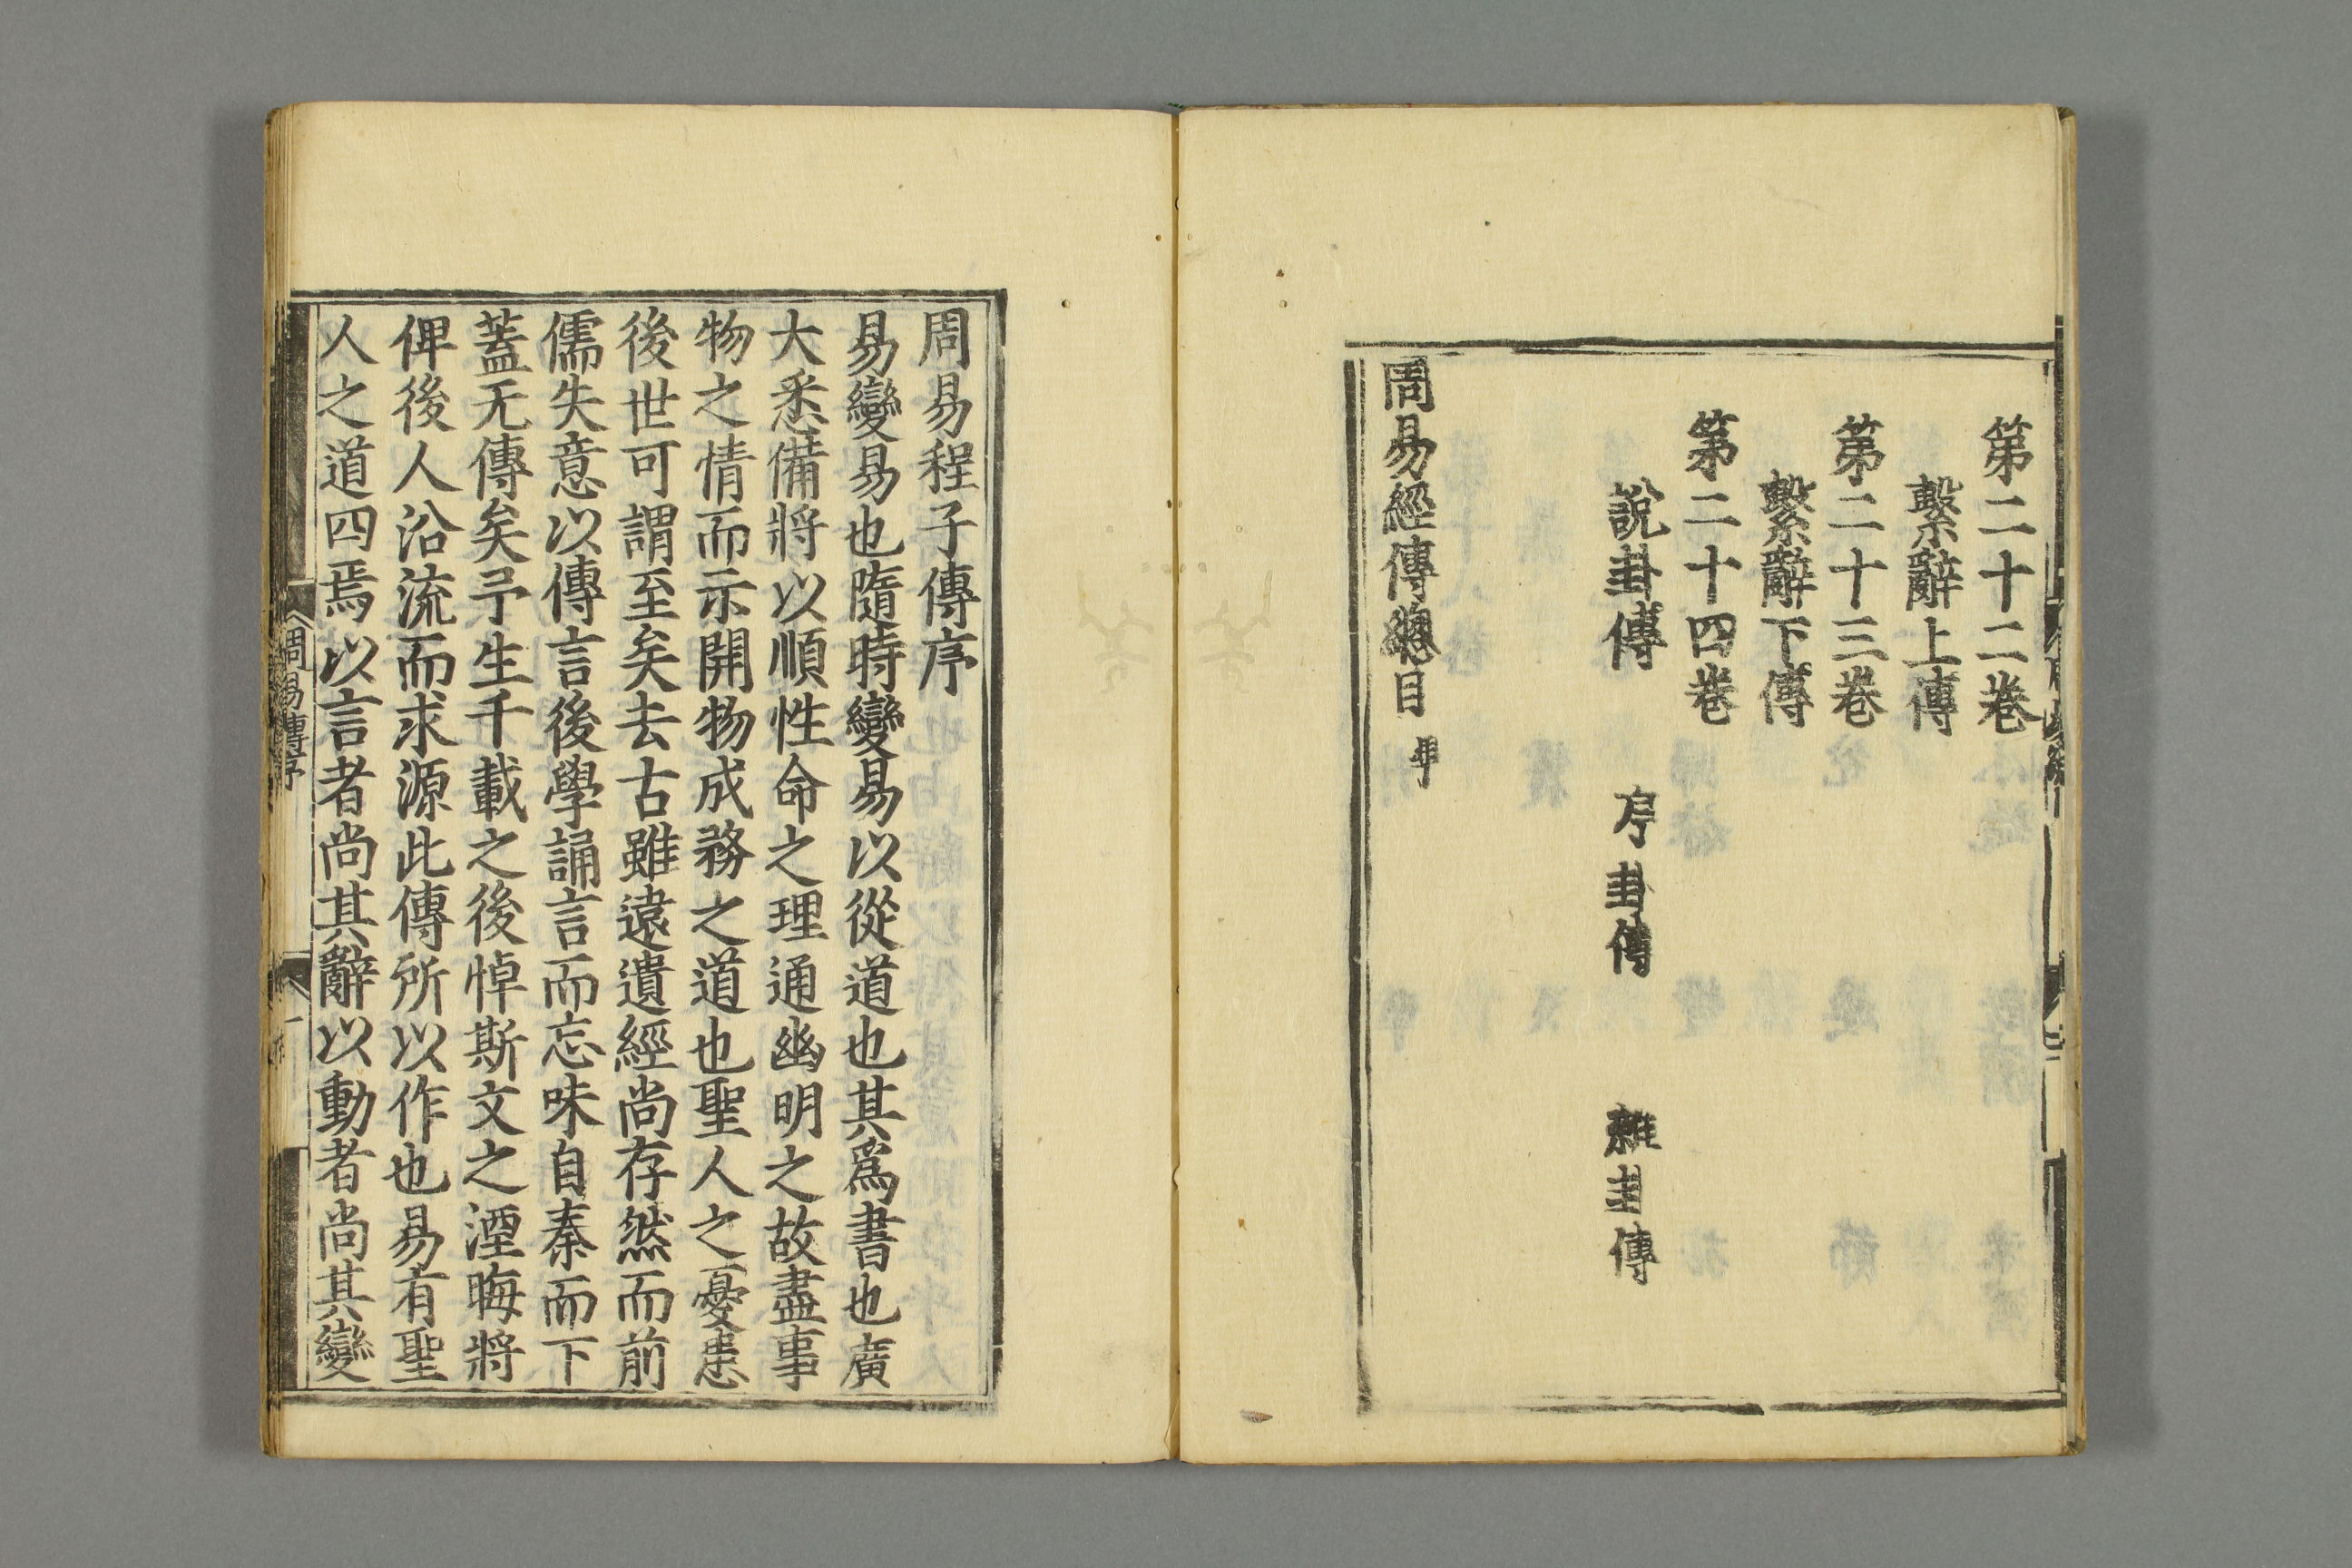 第二十二巻
繫辭上傳
第二十三巻
繫辭下傳
第二十四巻
說卦傳 序卦傳 雜卦傳
周易經傳總目 畢
周易程子傳序
易變易也隨時變易以從道也其爲書也廣
大悉備將以順性命之理通幽明之故盡事
物之情而示開物成務之道也聖人之憂患
後世可謂至矣去古雖遠遺經尚存然而前
儒失意以傳言後學誦言而忘味自秦而下
蓋无傳矣予生千載之後悼斯文之湮晦將
俾後人沿流而求源此傳所以作也易有聖
人之道四焉以言者尚其辭以動者尚其變
周易傳序 一